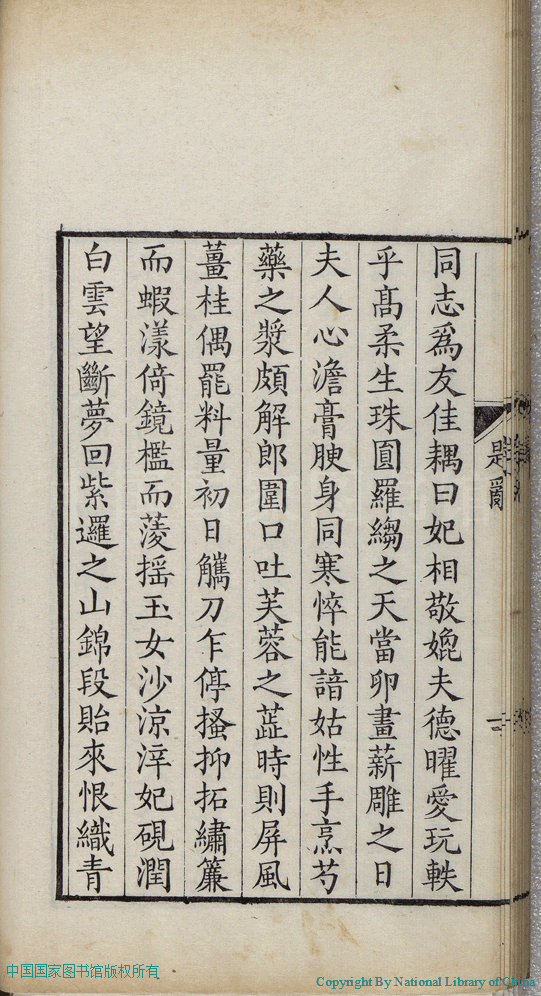 同志爲友佳耦曰妃相敬媲夫德曜愛玩軼
乎髙柔生珠圓羅縐之天當卵畫薪雕之日
夫人心澹膏腴身同寒悴能諳姑性手烹芍
藥之漿頗解郎圍口吐芙蓉之虀時則屏風
薑桂偶罷料量初日觿刀乍停搔抑拓繡簾
而蝦漾倚鏡檻而蔆揺玉女沙涼滓妃硯潤
白雲望斷夢回紫邏之山錦段貽來恨織青
題
二
中国国家图书馆版权所有
Copyright By National Library of China